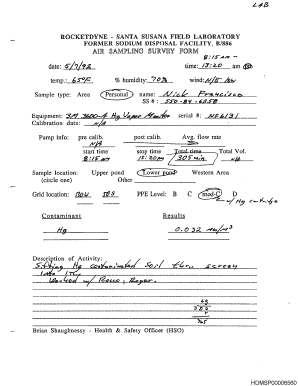 LAB
ROCKETDYNE - SANTA SUSANA FIELD LABORATORY
FORMER SODIUM DISPOSAL FACILITY, B/886
AIR SAMPLING SURVEY FORM
8:15 AM -
date: 5/7/92 time: 13:20 am
temp.: 65°F % humidity: 70% wind: N/S
Sample type: Area Personal name: Nick Francisco
SS #:
Equipment: 3M 3600-A Hg Vapor Monitor serial #: NE6131
Calibration date: N/A
Pump info: pre calib. post calib. Avg. flow rate
N/A
start time stop time Total time Total Vol.
8:15 am 13:20 pm 305 min NA
Sample location: Upper pond Lower pond Western Area
(circle one) Other
Grid location: PPE Level: B C mod-C D
w/ Hg cartridge
Contaminant Results
Hg 0.032 mg/m³
Description of Activity:
Sifting Hg contaminated soil thru screen
into
Worked w/ Roger.
Brian Shaughnessy - Health & Safety Officer (HSO)
HDMSP00006560